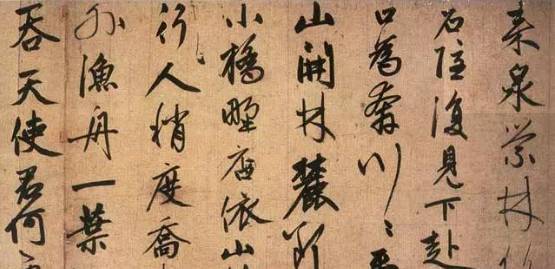 来泉縈林
石隱復見下赴
口為奔川〻
山開林麓斷
小橋野店依山
行人稍度喬
外漁舟一葉
吞天使君何